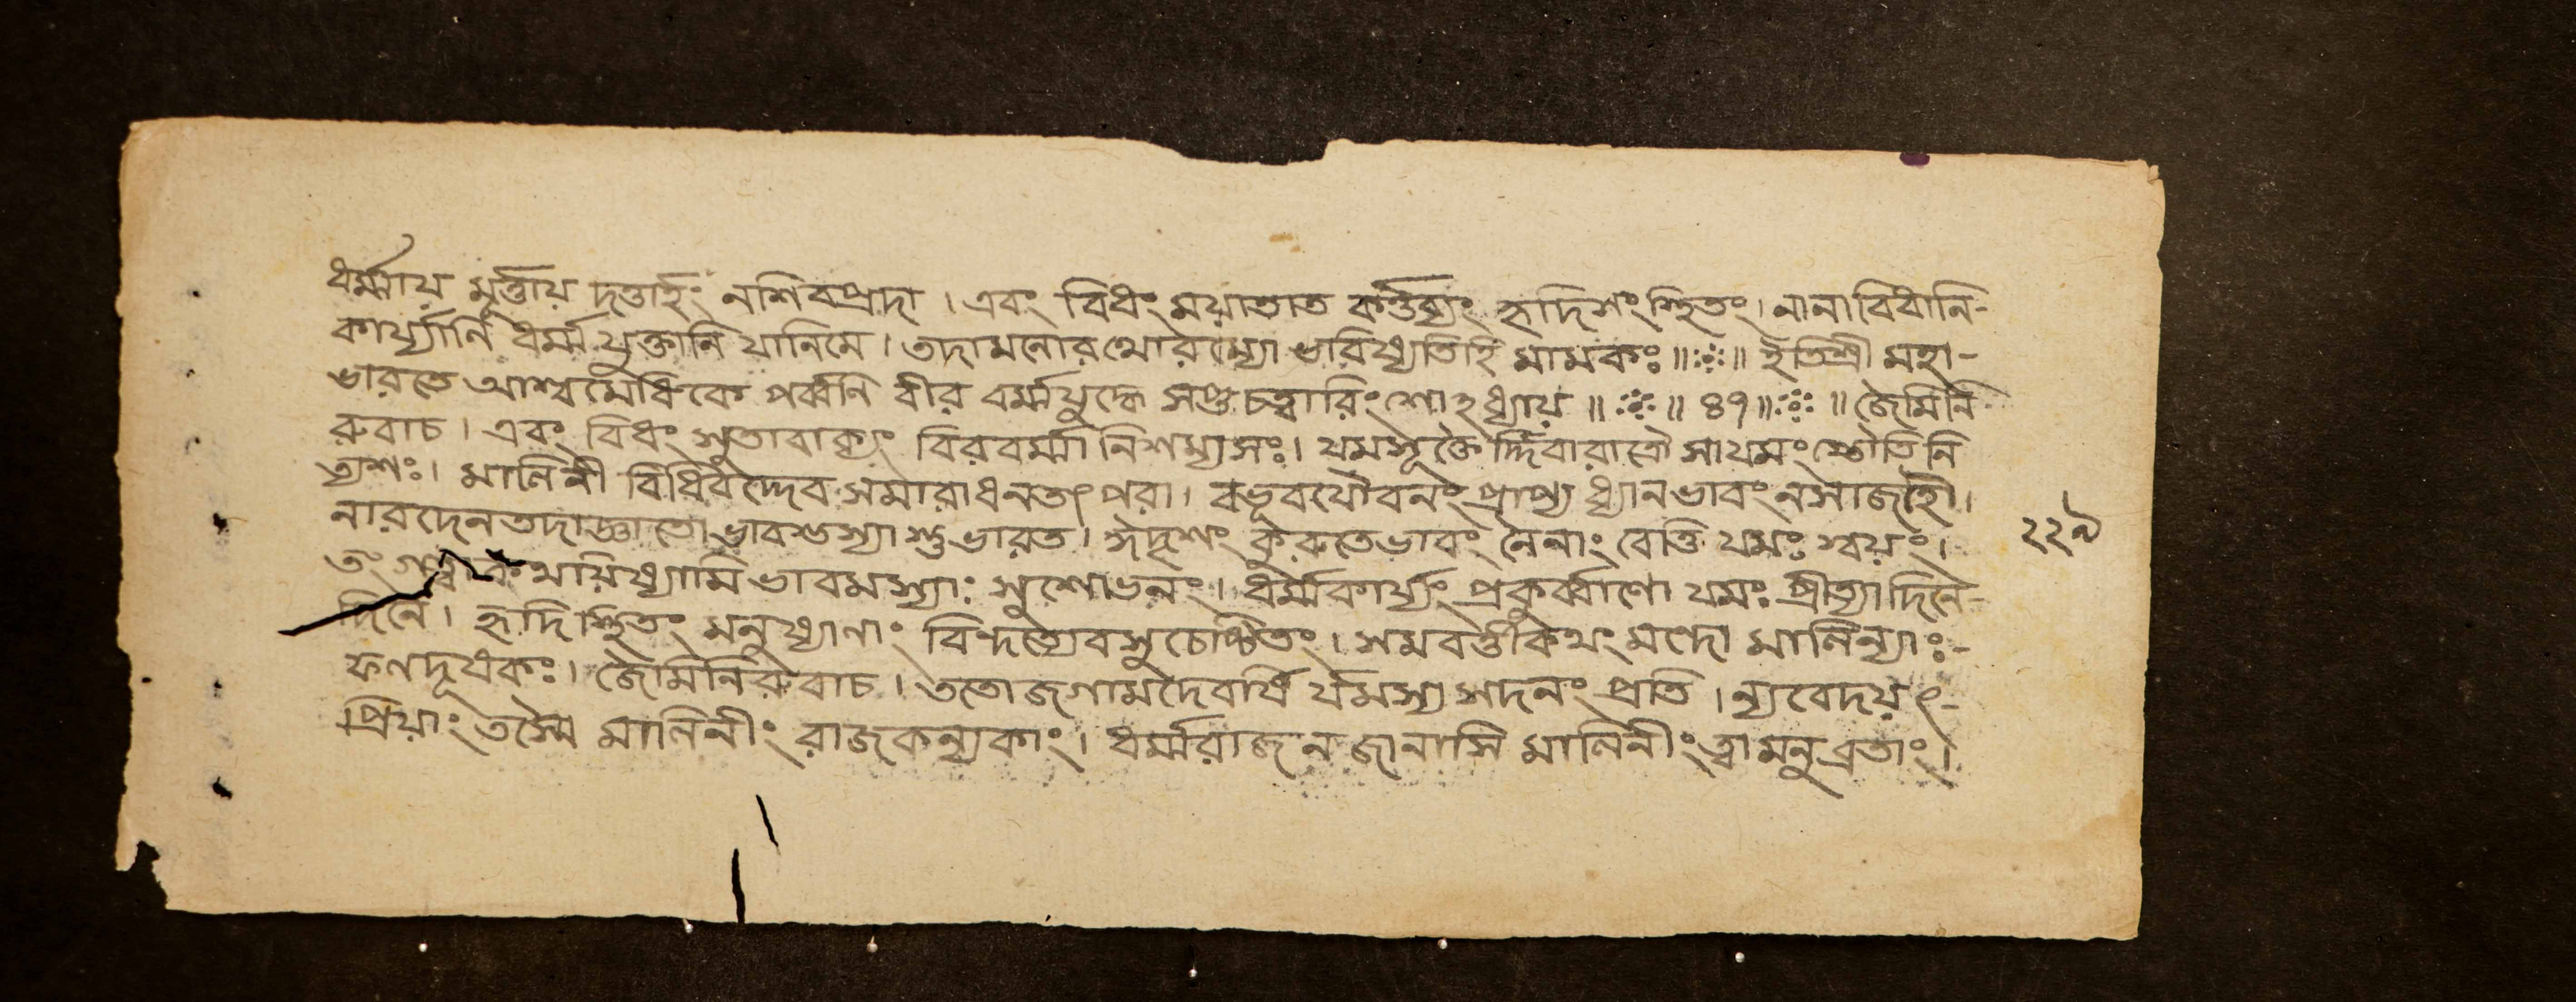 ধর্ম্মায় মূর্ত্তায় দত্তাহং নশিবপ্রদা । এবং বিধং ময়াতাত কর্ত্তব্যং হৃদিশংস্থিতং। নানাবিধানি-
কার্য্যানি ধর্ম্মযুক্তানি যানিমে । তদামনোরথোরম্যো ভাবিষ্যতিহি মামকঃ ॥ ইতিশ্রী মহা-
ভারতে আশ্বমেধিকে পর্ব্বণি বীর বর্ম্মযুদ্ধে সপ্তচত্বারিংশোঽধ্যায় ॥ ৪৭ ॥ জৈমিনি
রুবাচ । এবং বিধং সুতাবাক্যং বিরবর্ম্মা নিশম্যসঃ। যমসূক্তৈর্দ্দিবারাত্রৌ সাযমংস্তৌতি নি
ত্যশঃ। মালিনী বিধিবদ্দেব সমারাধনতৎপরা। বভূবযৌবনং প্রাপ্য ধ্যানভাবং নসাজহৌ।
নারদেনতদাজ্ঞাতো ভাবস্তস্যাস্তু ভারত। ঈদৃশং কুরুতেভাবং নৈনাং বেত্তি যমঃ স্বয়ং।
তং গত্বা কথায়িষ্যামি ভাবমস্যাঃ সুশোভনং। ধর্ম্মকার্য্যং প্রকুর্ব্বাণো যমঃ প্রীত্যাদিনে-
দিনে। হৃদিস্থিতং মনুষ্যাণাং বিন্দত্যেবসুচেষ্টিতং। সমবর্ত্তীকথং মন্দো মালিন্যাঃ-
ফণদূষকঃ। জৈমিনিরুবাচ । ততোজগামদেবর্ষি র্যমস্য সদনং প্রতি । ন্যবেদয়ৎ-
প্রিয়াং তস্মৈ মালিনীং রাজকন্যকাং। ধর্ম্মরাজ নজানাসি মালিনীং ত্বামনুব্রতাং।
২২৯